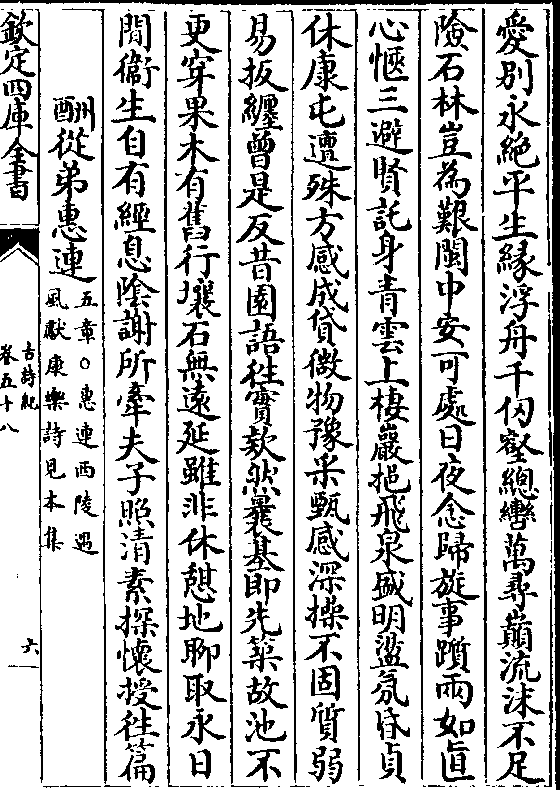 愛别永絶平生縁浮舟千仭壑總轡萬尋巔流沫不足
險石林豈為艱閩中安可處日夜念歸旋事躓兩如直
心愜三避賢託身青雲上棲巖挹飛泉盛明盪氛昏貞
休康屯邅殊方感成貸微物豫采甄感深操不固質弱
易扳纏曽是反昔園語徃實欵然曩基即先築故池不
更穿果木有舊行壤石無遠延雖非休憇地聊取永日
閒衞生自有經息陰謝所牽夫子照清素探懷授徃篇
酬從弟惠連五章○惠連西陵遇
風獻康樂詩見本集
欽定四庫全書
古詩紀
卷五十八
六